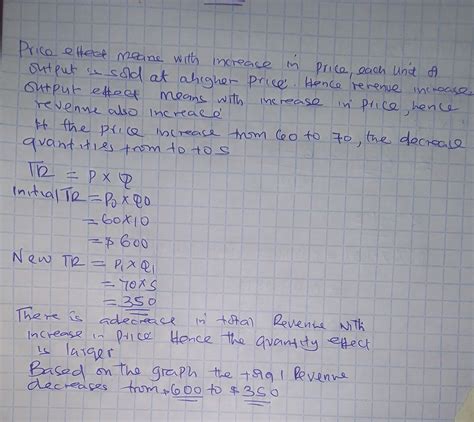 Price effect means with increase in price, each unit of
output is sold at a higher price. Hence revenue increase.
output effect means with increase in price, hence
revenue also increace
If the price increase from 60 to 70, the decrease
quantities from to to 5
TR = P x Q
Initial TR = P0 x Q0
= 60 x 10
= $ 600
New TR = P1 x Q1
= 70 x 5
= 350
There is adecreace in total Revenue with
increase in price Hence the quantity effect
is larger
Based on the graph the total Revenue
decreases from $600 to $350